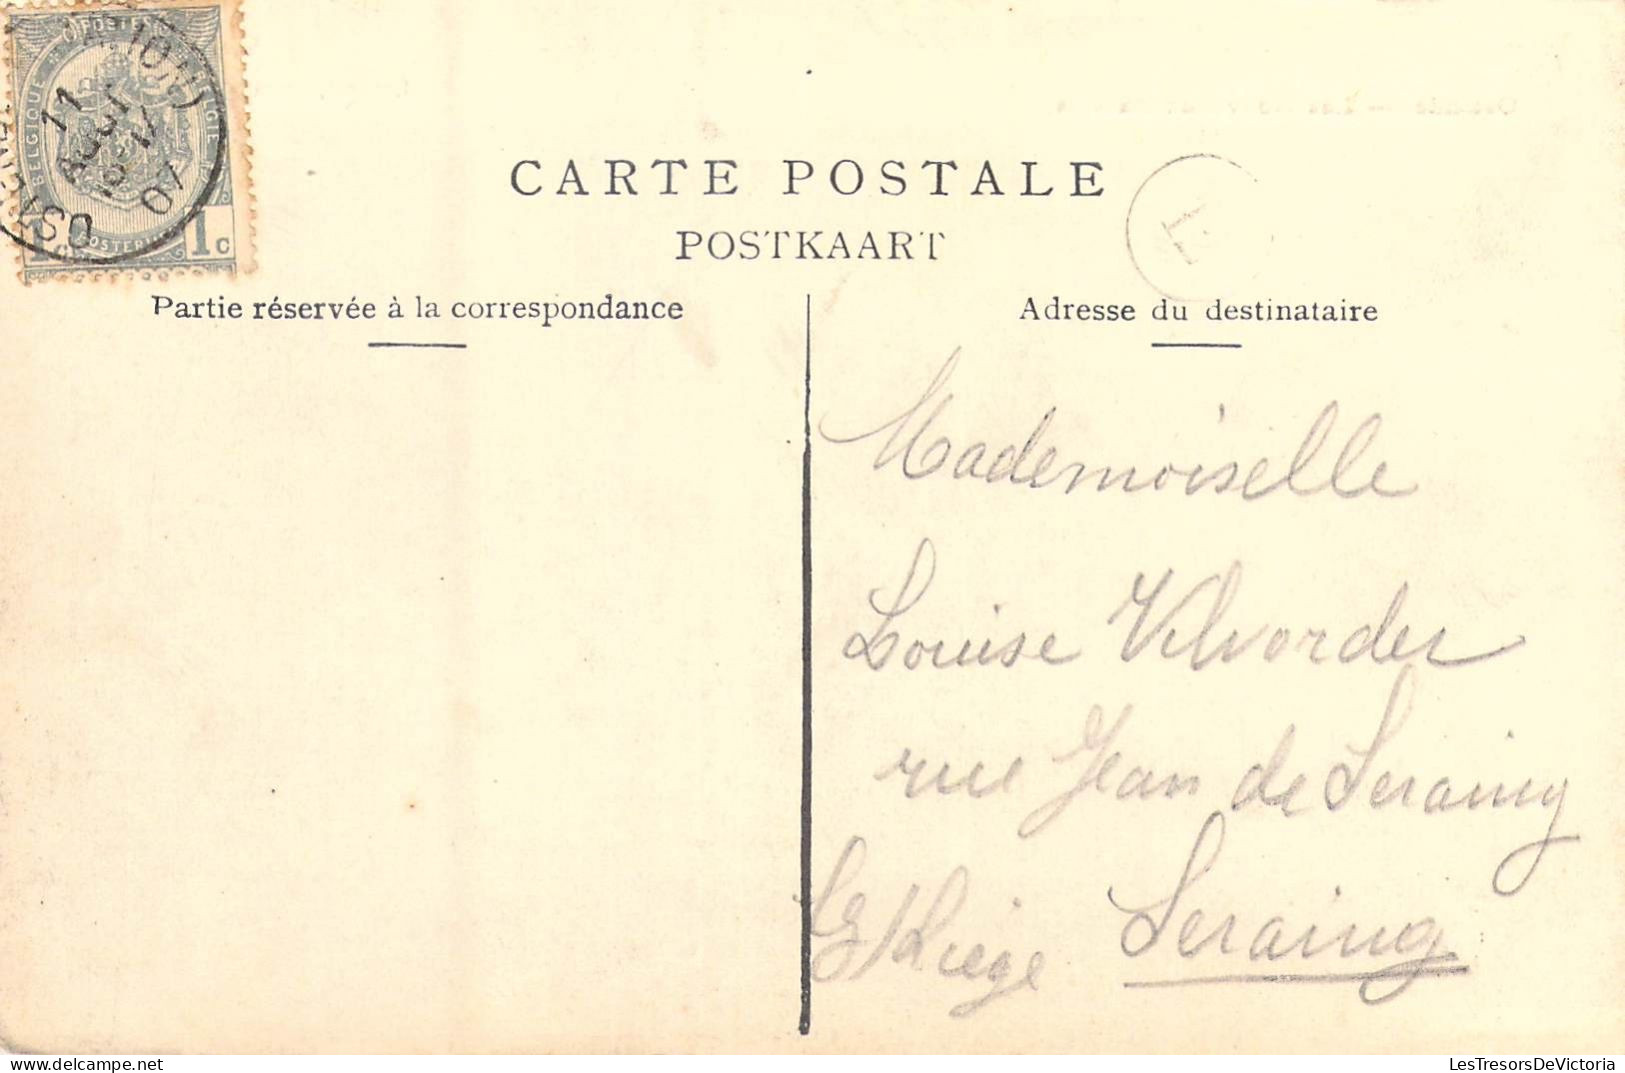 POSTES
BELGIQUE
BELGIE
POSTERIJEN
1c 1c
11
AOUT
07
CARTE POSTALE
POSTKAART
Partie réservée à la correspondance
Adresse du destinataire
Mademoiselle
Louise Vilvorder
rue Jean de Seraing
Liége Seraing
LesTresorsDeVictoria